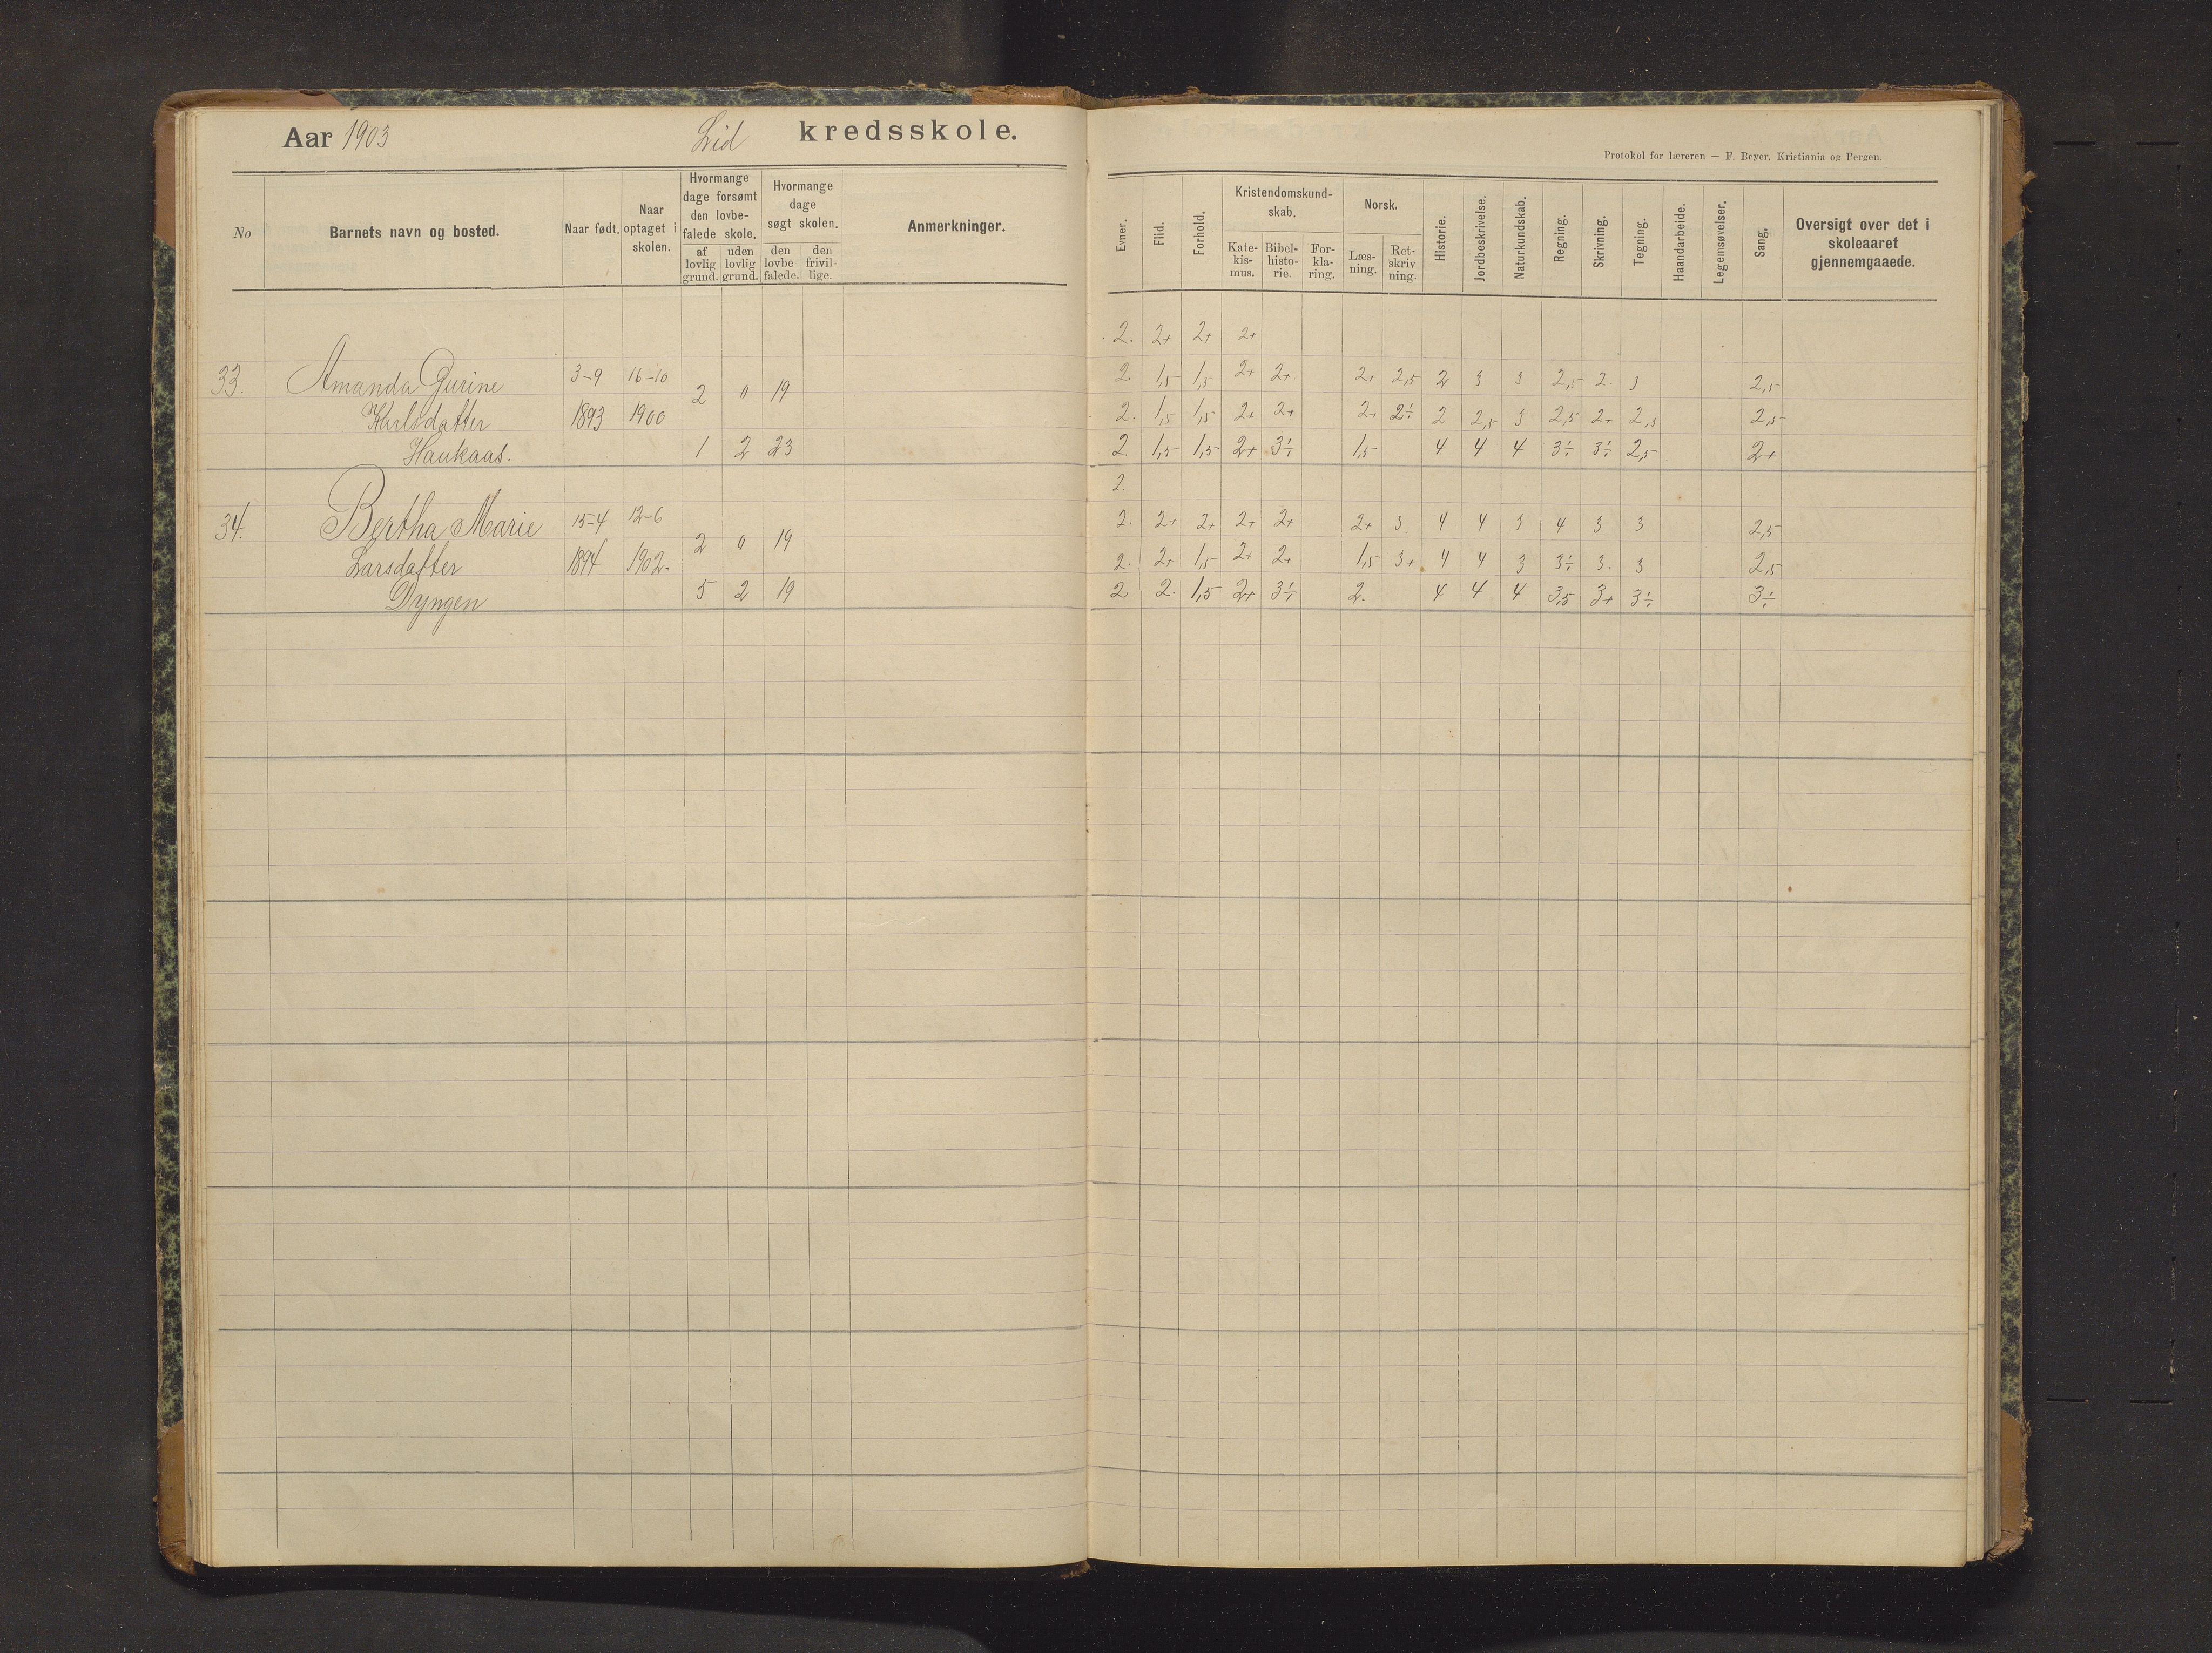 Aar 1903 Lid kredsskole.
Protokol for læreren — F. Beyer. Kristiania og Bergen.
No
Barnets navn og bosted.
Naar født.
Naar optaget i skolen.
Hvormange dage forsømt den lovbefalede skole.
af lovlig grund.
uden lovlig grund.
Hvormange dage søgt skolen.
den lovbefalede.
den frivillige.
Anmerkninger.
Evner.
Flid.
Forhold.
Kristendomskundskab.
Katekismus.
Bibelhistorie.
Forklaring.
Norsk.
Læsning.
Retskrivning.
Historie.
Jordbeskrivelse.
Naturkundskab.
Regning.
Skrivning.
Tegning.
Haandarbeide.
Legemsøvelser.
Sang.
Oversigt over det i skoleaaret gjennemgaaede.
2. 2+ 2+ 2+
33. Amanda Gurine 3-9 16-10 2 " 19 2 1,5 1,5 2+ 2+ 2+ 2,5 2 3 3 2,5 2. 3 2,5
Karlsdatter 1893 1900 2. 1,5 1,5 2+ 2+ 2+ 2÷ 2 2,5 3 2,5 2+ 2,5 2,5
Haukaas. 1 2 23 2. 1,5 1,5 2+ 3÷ 1,5 4 4 4 3÷ 3÷ 2,5 2+
2.
34. Bertha Marie 15-4 12-6 2 " 19 2. 2+ 2+ 2+ 2+ 2+ 3. 4 4 3 4 3 3 2,5
Larsdatter 1894 1902. 2. 2+ 1,5 2+ 2+ 1,5 3+ 4 4 3 3÷ 3. 3 2,5
Dyngen 5 2 19 2 2. 1,5 2+ 3÷ 2. 4 4 4 3,5 3+ 3÷ 3÷